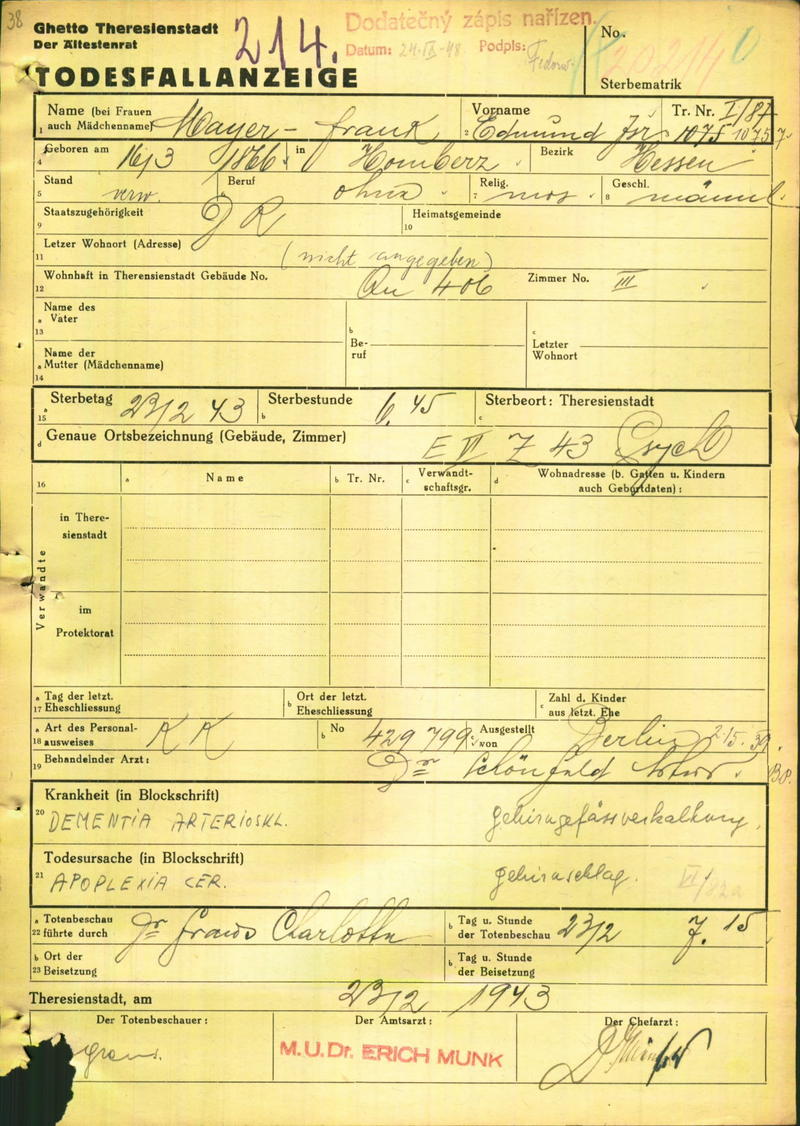 38
Ghetto Theresienstadt
Der Ältestenrat
214.
Dodatečný zápis nařízen.
Datum: 24.IX.48 Podpis:
No.
TODESFALLANZEIGE
Sterbematrik
Name (bei Frauen auch Mädchenname) Mayer-Frank
1
Vorname Edmund Isr.
2
Tr. Nr. I/87
1075 1075 7
Geboren am 16/3 1866. in Homberz Bezirk Hessen
4
Stand verw. Beruf ohne Relig. mos Geschl. männl.
5 6 7 8
Staatszugehörigkeit DR Heimatsgemeinde
9 10
Letzer Wohnort (Adresse) (nicht angegeben)
11
Wohnhaft in Therensienstadt Gebäude No. Qu 406 Zimmer No. III
12
Name des Vater
a 13
b Beruf
c Letzter Wohnort
Name der Mutter (Mädchenname)
a 14
a 15 Sterbetag 23/2 43 b Sterbestunde 6.45 c Sterbeort: Theresienstadt
d Genaue Ortsbezeichnung (Gebäude, Zimmer) E VI Z 43 Psych
16 a Name b Tr. Nr. c Verwandtschaftsgr. d Wohnadresse (b. Gatten u. Kindern auch Geburtdaten):
Verwandte
in Theresienstadt
im Protektorat
a 17 Tag der letzt. Eheschliessung b Ort der letzt. Eheschliessung c Zahl d. Kinder aus letzt. Ehe
a 18 Art des Personalausweises KK b No 429 799 c Ausgestellt von Berlin 2.15.39.
19 Behandelnder Arzt: Dr Schönfeld
Krankheit (in Blockschrift)
20 DEMENTIA ARTERIOSKL. gehirngefässverkalkung.
Todesursache (in Blockschrift)
21 APOPLEXIA CER. gehirnschlag.
a 22 Totenbeschau führte durch Dr Charlotte b Tag u. Stunde der Totenbeschau 23/2 7.15
b 23 Ort der Beisetzung b Tag u. Stunde der Beisetzung
Theresienstadt, am 23/2 1943
Der Totenbeschauer: Der Amtsarzt: Der Chefarzt:
M.U.Dr. ERICH MUNK